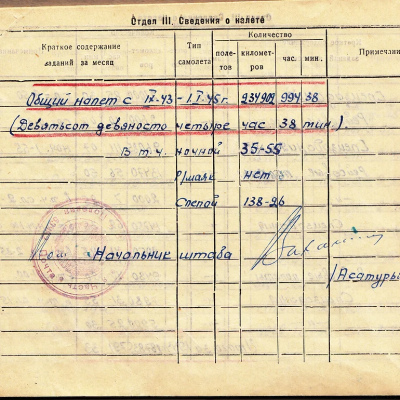 Отдел III. Сведения о налёте
Краткое содержание заданий за месяц
Тип самолета
Количество
полетов
километров
час.
мин.
Примечани
Общий налет с IX-43 - 1.I-45 г. 234909 994 38
(Девятьсот девяносто четыре час 38 мин.).
В т.ч. ночной 35-55
Р/маяк нет
Слепой 138-26
Начальник штаба
/Асатуры